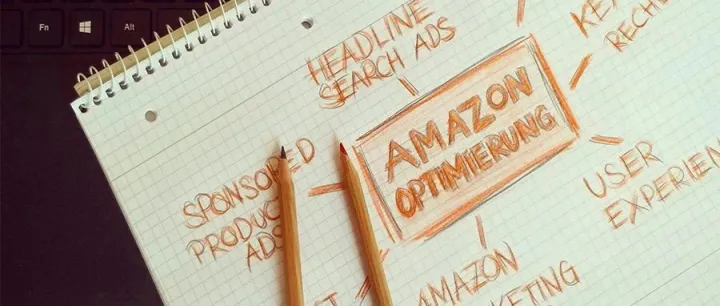 Fn
Alt
HEADLINE
SEARCH ADS
RECHE
AMAZON
OPTIMIERUNG
SPONSORED
PRODUCT
ADS
USER
EXPERIEN
AMAZON
KETING